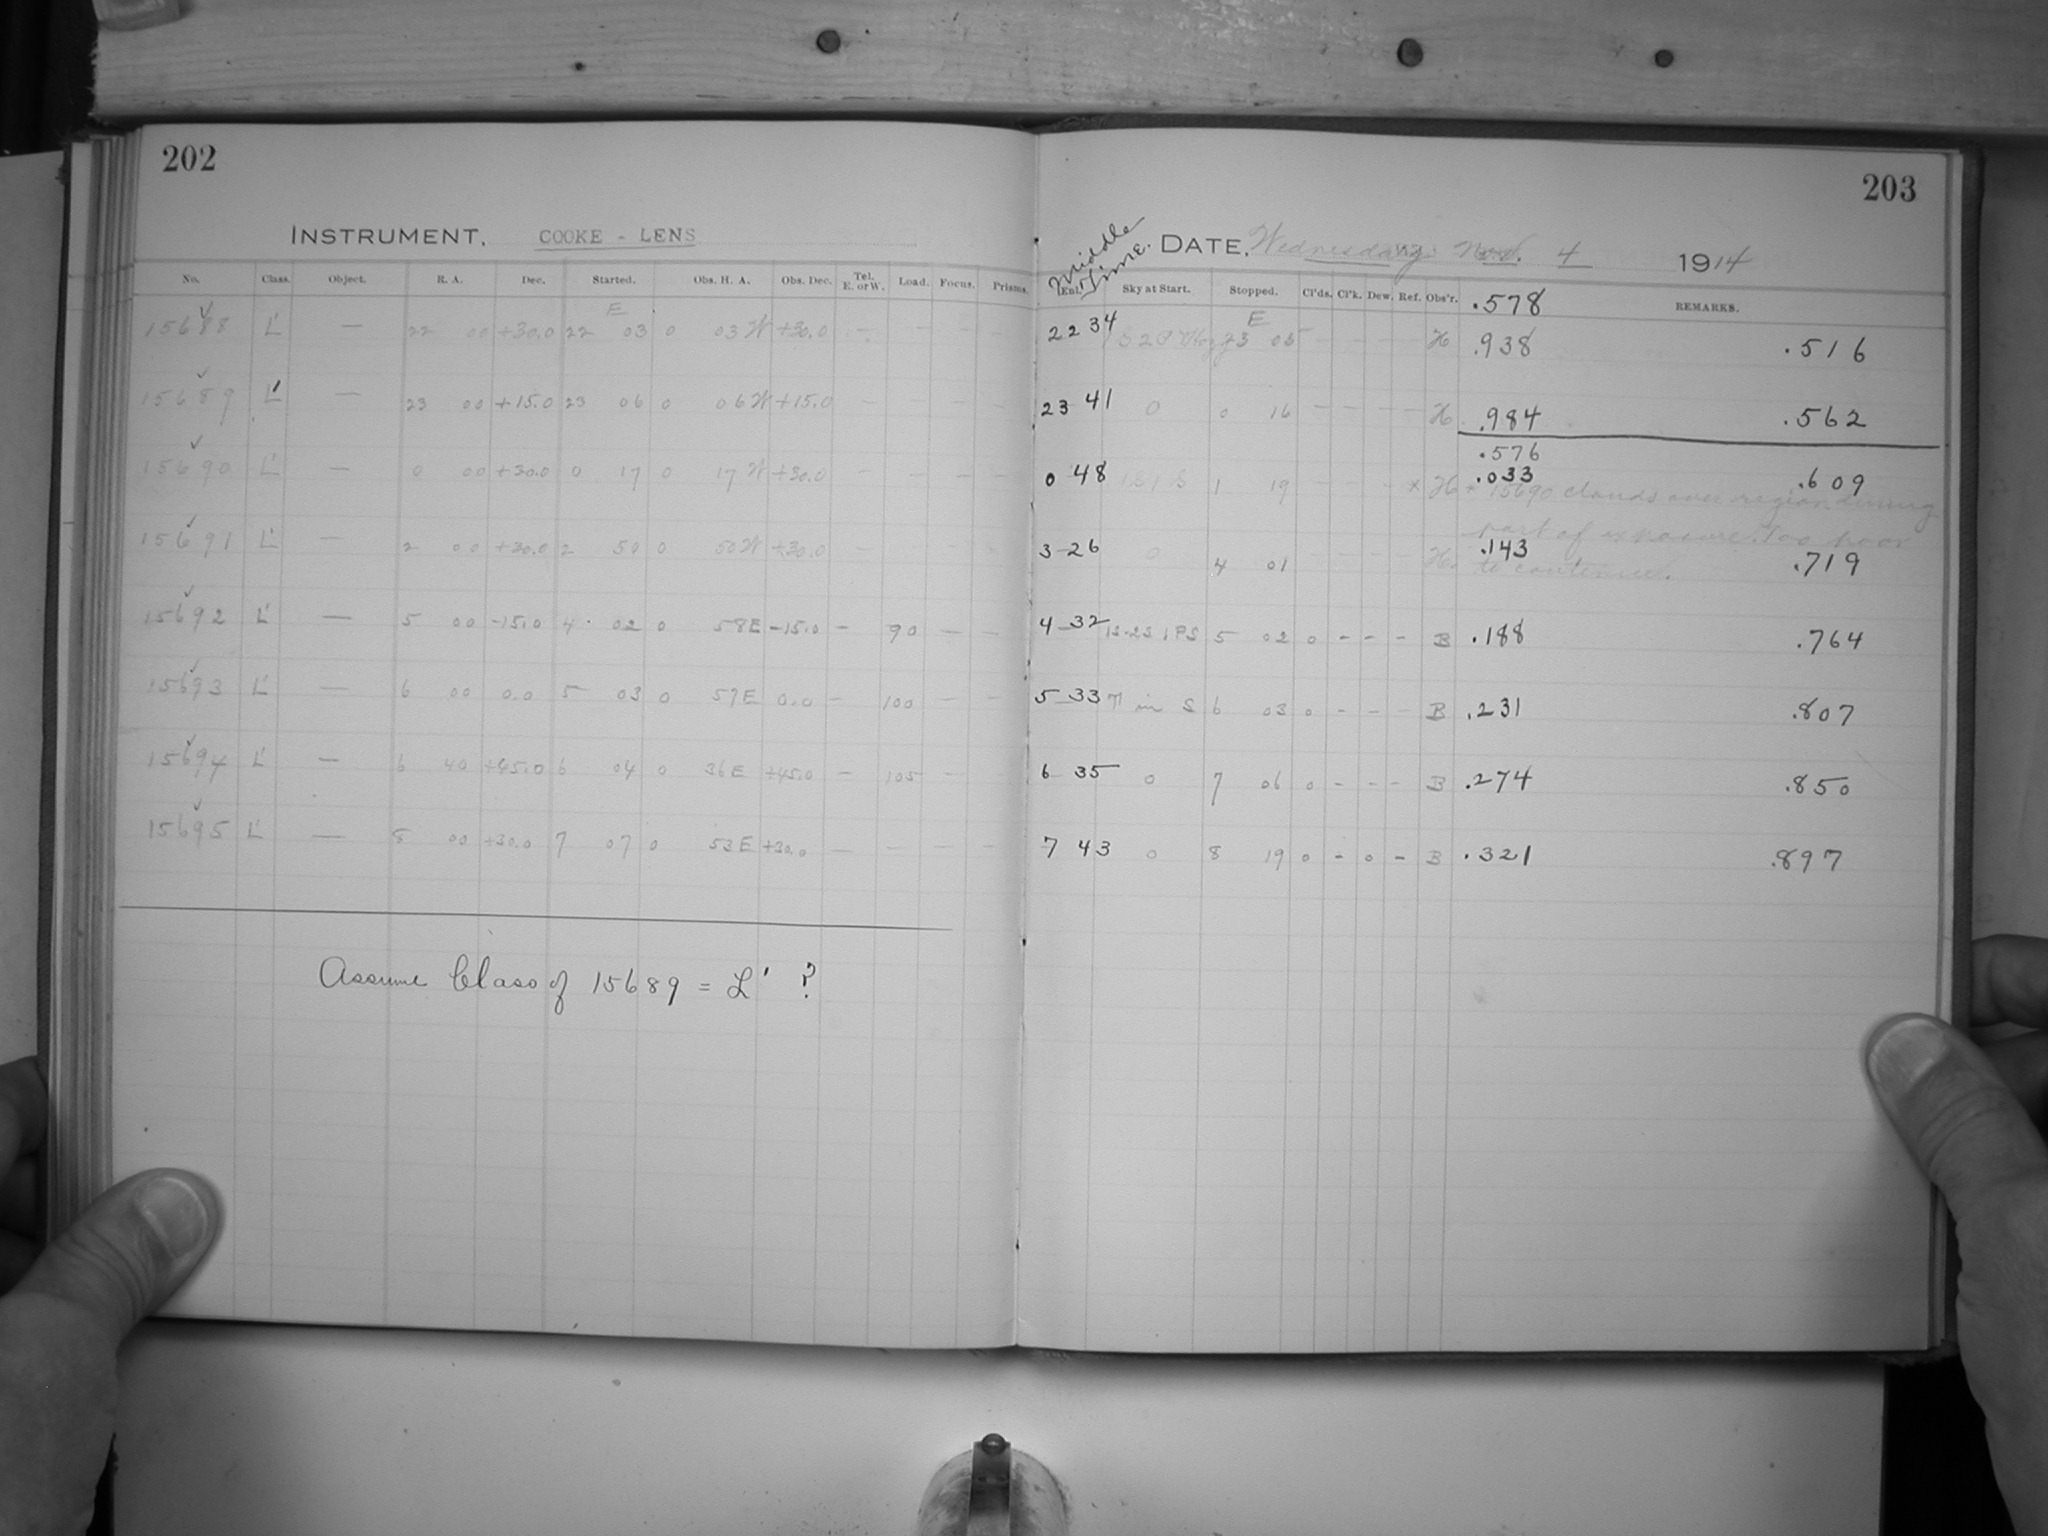 202
INSTRUMENT. COOKE - LENS
No. Class. Object. R. A. Dec. Started. Obs. H. A. Obs. Dec. Tel. E. or W. Load. Focus. Prisms.
E
15688 L' — 22 00 +30.0 22 03 0 03 W +30.0 — — — —
15689 L' — 23 00 +15.0 23 06 0 06 W +15.0 — — — —
15690 L' — 0 00 +30.0 0 17 0 17 W +30.0 — — — —
15691 L' — 2 00 +30.0 2 50 0 50 W +30.0 — — — —
15692 L' — 5 00 -15.0 4 02 0 58 E -15.0 — 90 — —
15693 L' — 6 00 0.0 5 03 0 57 E 0.0 — 100 — —
15694 L' — 6 40 +45.0 6 04 0 36 E +45.0 — 105 — —
15695 L' — 8 00 +30.0 7 07 0 53 E +30.0 — — — —
Assume Class of 15689 = L' ?
203
Middle Time. DATE. Wednesday Nov. 4 1914
Sky at Start. Stopped. Cl'ds. Cl'k. Dew. Ref. Obs'r. .578 REMARKS.
E
22 34 23 05 — — — — H .938 .516
23 41 0 0 16 — — — — H .984 .562
.576
0 48 1 19 — — — × H .033 .609
× 15690 clouds over region during
part of exposure. Too poor
to continue.
3 26 0 4 01 — — — — H .143 .719
4 32 5 02 0 - - - B .188 .764
5 33 in S 6 03 0 - - - B .231 .807
6 35 0 7 06 0 - - - B .274 .850
7 43 0 8 19 0 - 0 - B .321 .897